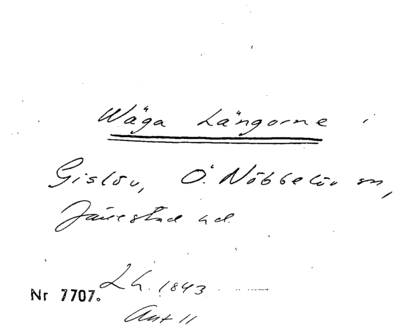 Wäga Längorne i
Gislöv, Ö. Nöbbelöv sn,
Järrestad hd.
Nr 7707. L.h. 1843
Ant 11